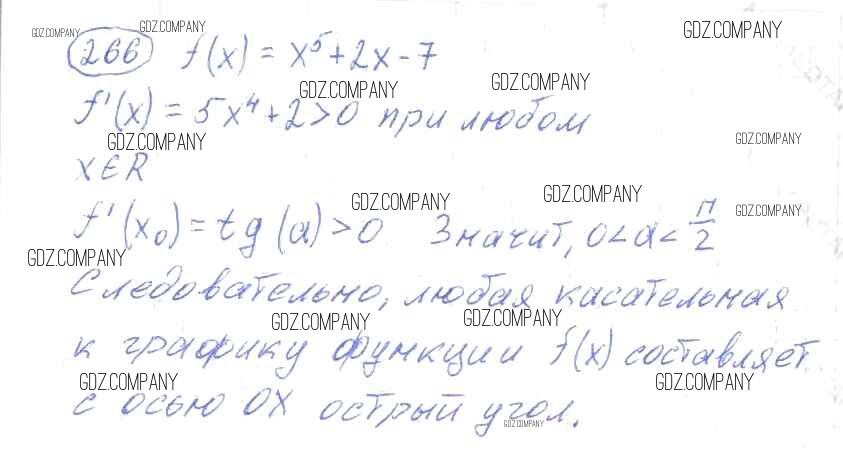 GDZ.COMPANY GDZ.COMPANY GDZ.COMPANY
266 f(x) = x⁵ + 2x - 7
GDZ.COMPANY GDZ.COMPANY
f'(x) = 5x⁴ + 2 > 0 при любом
GDZ.COMPANY GDZ.COMPANY
x ∈ R
GDZ.COMPANY GDZ.COMPANY GDZ.COMPANY
f'(x₀) = tg(a) > 0 Значит, 0 < a < π/2
GDZ.COMPANY
Следовательно, любая касательная
GDZ.COMPANY GDZ.COMPANY
к графику функции f(x) составляет
GDZ.COMPANY GDZ.COMPANY
с осью OX острый угол.
GDZ.COMPANY